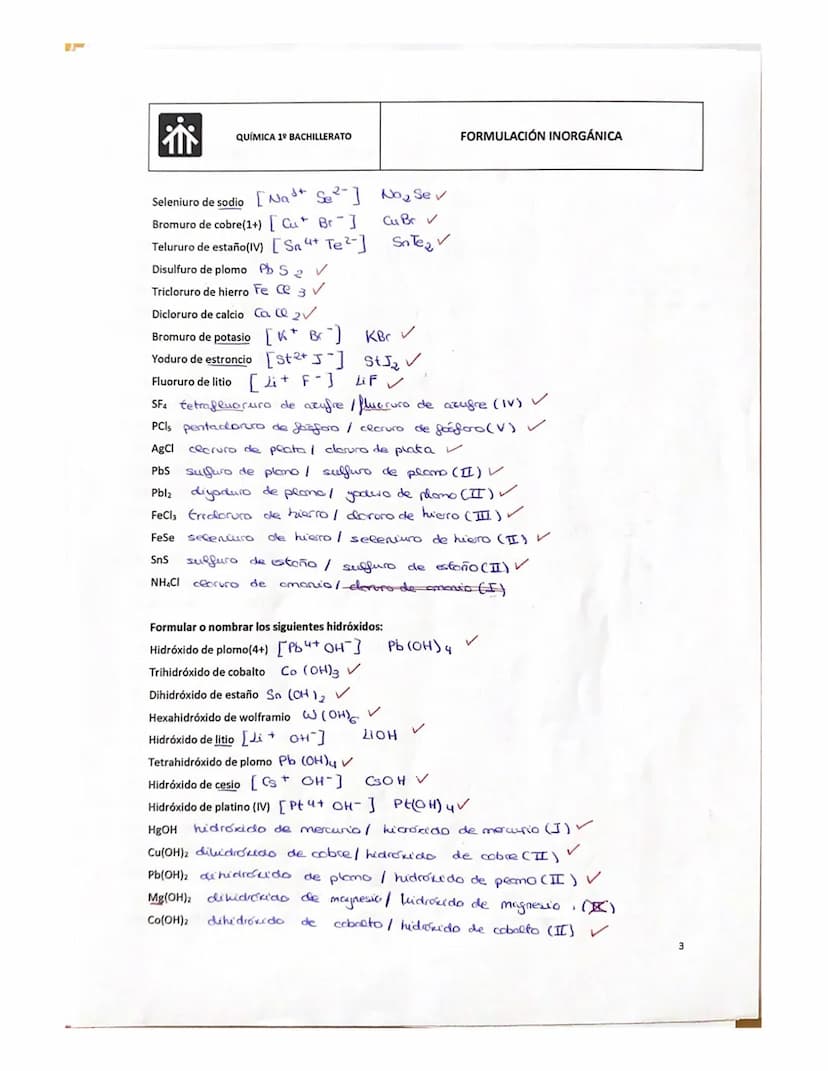 QUÍMICA 1º BACHILLERATO
FORMULACIÓN INORGÁNICA
Seleniuro de sodio [Na¹⁺ Se²⁻] Na₂Se ✓
Bromuro de cobre(1+) [Cu⁺ Br⁻] CuBr ✓
Telururo de estaño(IV) [Sn⁴⁺ Te²⁻] SnTe₂ ✓
Disulfuro de plomo PbS₂ ✓
Tricloruro de hierro FeCl₃ ✓
Dicloruro de calcio CaCl₂ ✓
Bromuro de potasio [K⁺ Br⁻] KBr ✓
Yoduro de estroncio [St²⁺ I⁻] StI₂ ✓
Fluoruro de litio [Li⁺ F⁻] LiF ✓
SF₄ tetrafluoruro de azufre / fluoruro de azufre (IV) ✓
PCl₅ pentacloruro de fósforo / cloruro de fósforo (V) ✓
AgCl cloruro de plata / cloruro de plata ✓
PbS sulfuro de plomo / sulfuro de plomo (II) ✓
PbI₂ diyoduro de plomo / yoduro de plomo (II) ✓
FeCl₃ tricloruro de hierro / cloruro de hierro (III) ✓
FeSe seleniuro de hierro / seleniuro de hierro (II) ✓
SnS sulfuro de estaño / sulfuro de estaño (II) ✓
NH₄Cl cloruro de amonio / cloruro de amonio (I)
Formular o nombrar los siguientes hidróxidos:
Hidróxido de plomo(4+) [Pb⁴⁺ OH⁻] Pb(OH)₄ ✓
Trihidróxido de cobalto Co(OH)₃ ✓
Dihidróxido de estaño Sn(OH)₂ ✓
Hexahidróxido de wolframio W(OH)₆ ✓
Hidróxido de litio [Li⁺ OH⁻] LiOH ✓
Tetrahidróxido de plomo Pb(OH)₄ ✓
Hidróxido de cesio [Cs⁺ OH⁻] CsOH ✓
Hidróxido de platino (IV) [Pt⁴⁺ OH⁻] Pt(OH)₄ ✓
HgOH hidróxido de mercurio / hidróxido de mercurio (I) ✓
Cu(OH)₂ dihidróxido de cobre / hidróxido de cobre (II) ✓
Pb(OH)₂ dihidróxido de plomo / hidróxido de plomo (II) ✓
Mg(OH)₂ dihidróxido de magnesio / hidróxido de magnesio. (II)
Co(OH)₂ dihidróxido de cobalto / hidróxido de cobalto (II) ✓
3